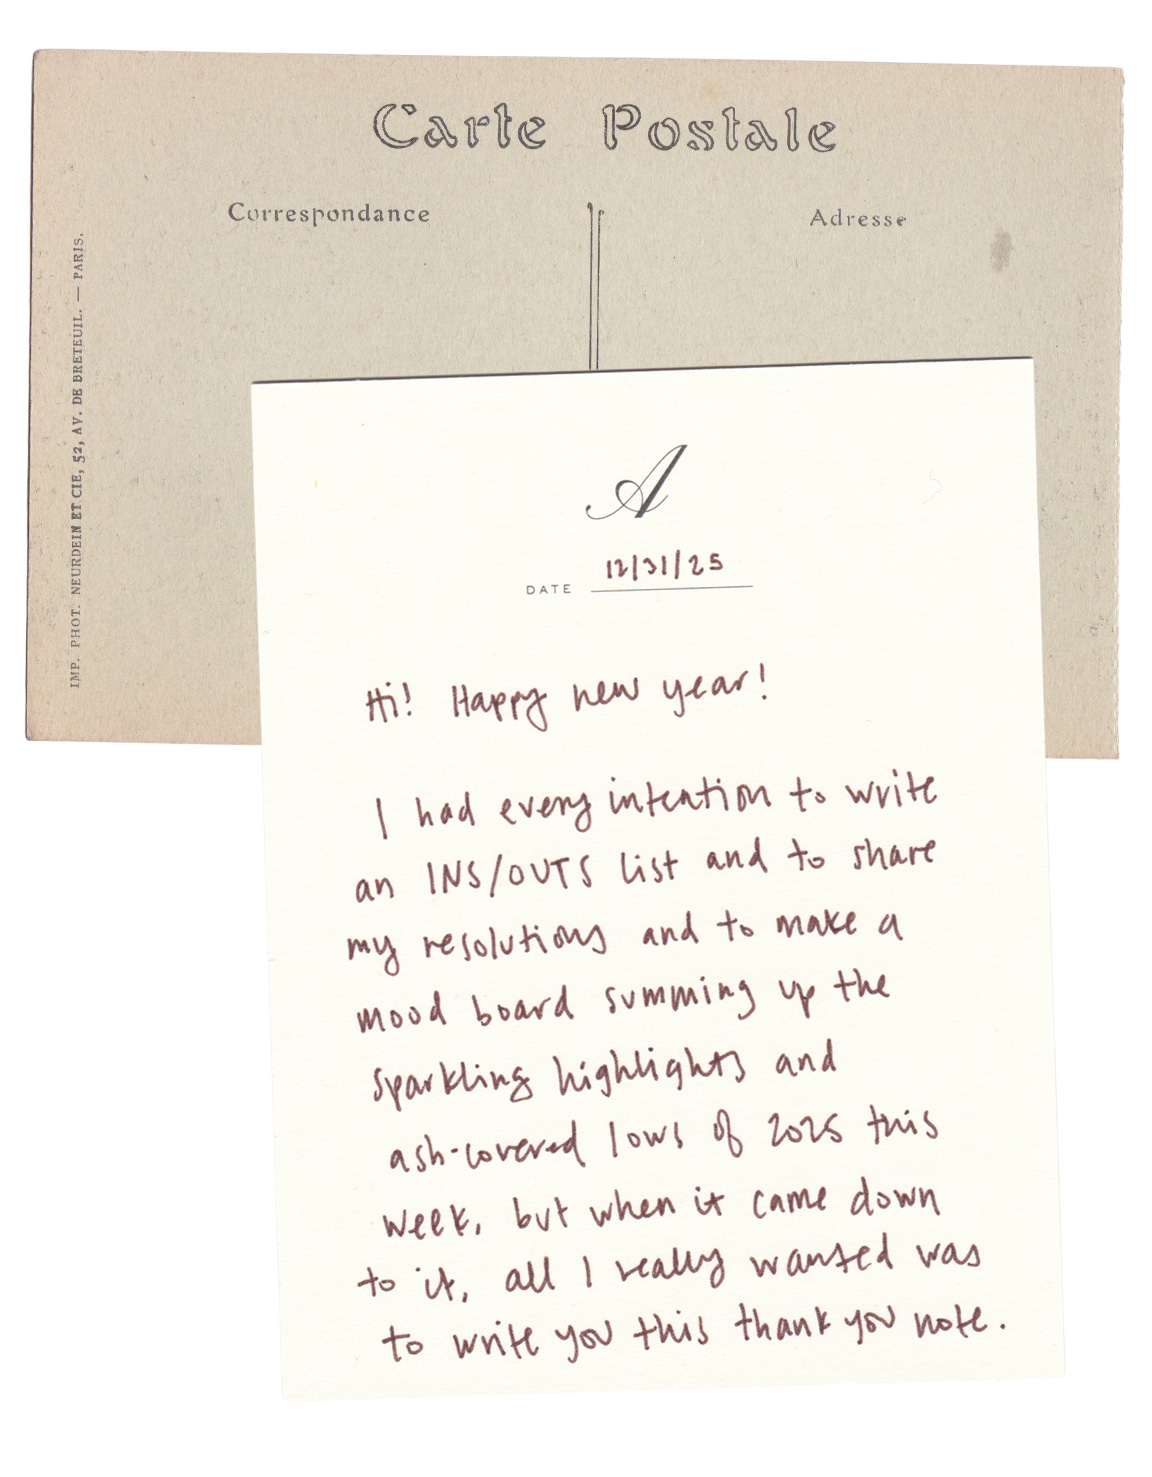 Carte Postale
Correspondance
Adresse
IMP. PHOT. NEURDEIN ET CIE, 52, AV. DE BRETEUIL. — PARIS.
A
DATE 12/31/25
Hi! Happy new year!
I had every intention to write
an INS/OUTS list and to share
my resolutions and to make a
mood board summing up the
sparkling highlights and
ash-covered lows of 2025 this
week, but when it came down
to it, all I really wanted was
to write you this thank you note.